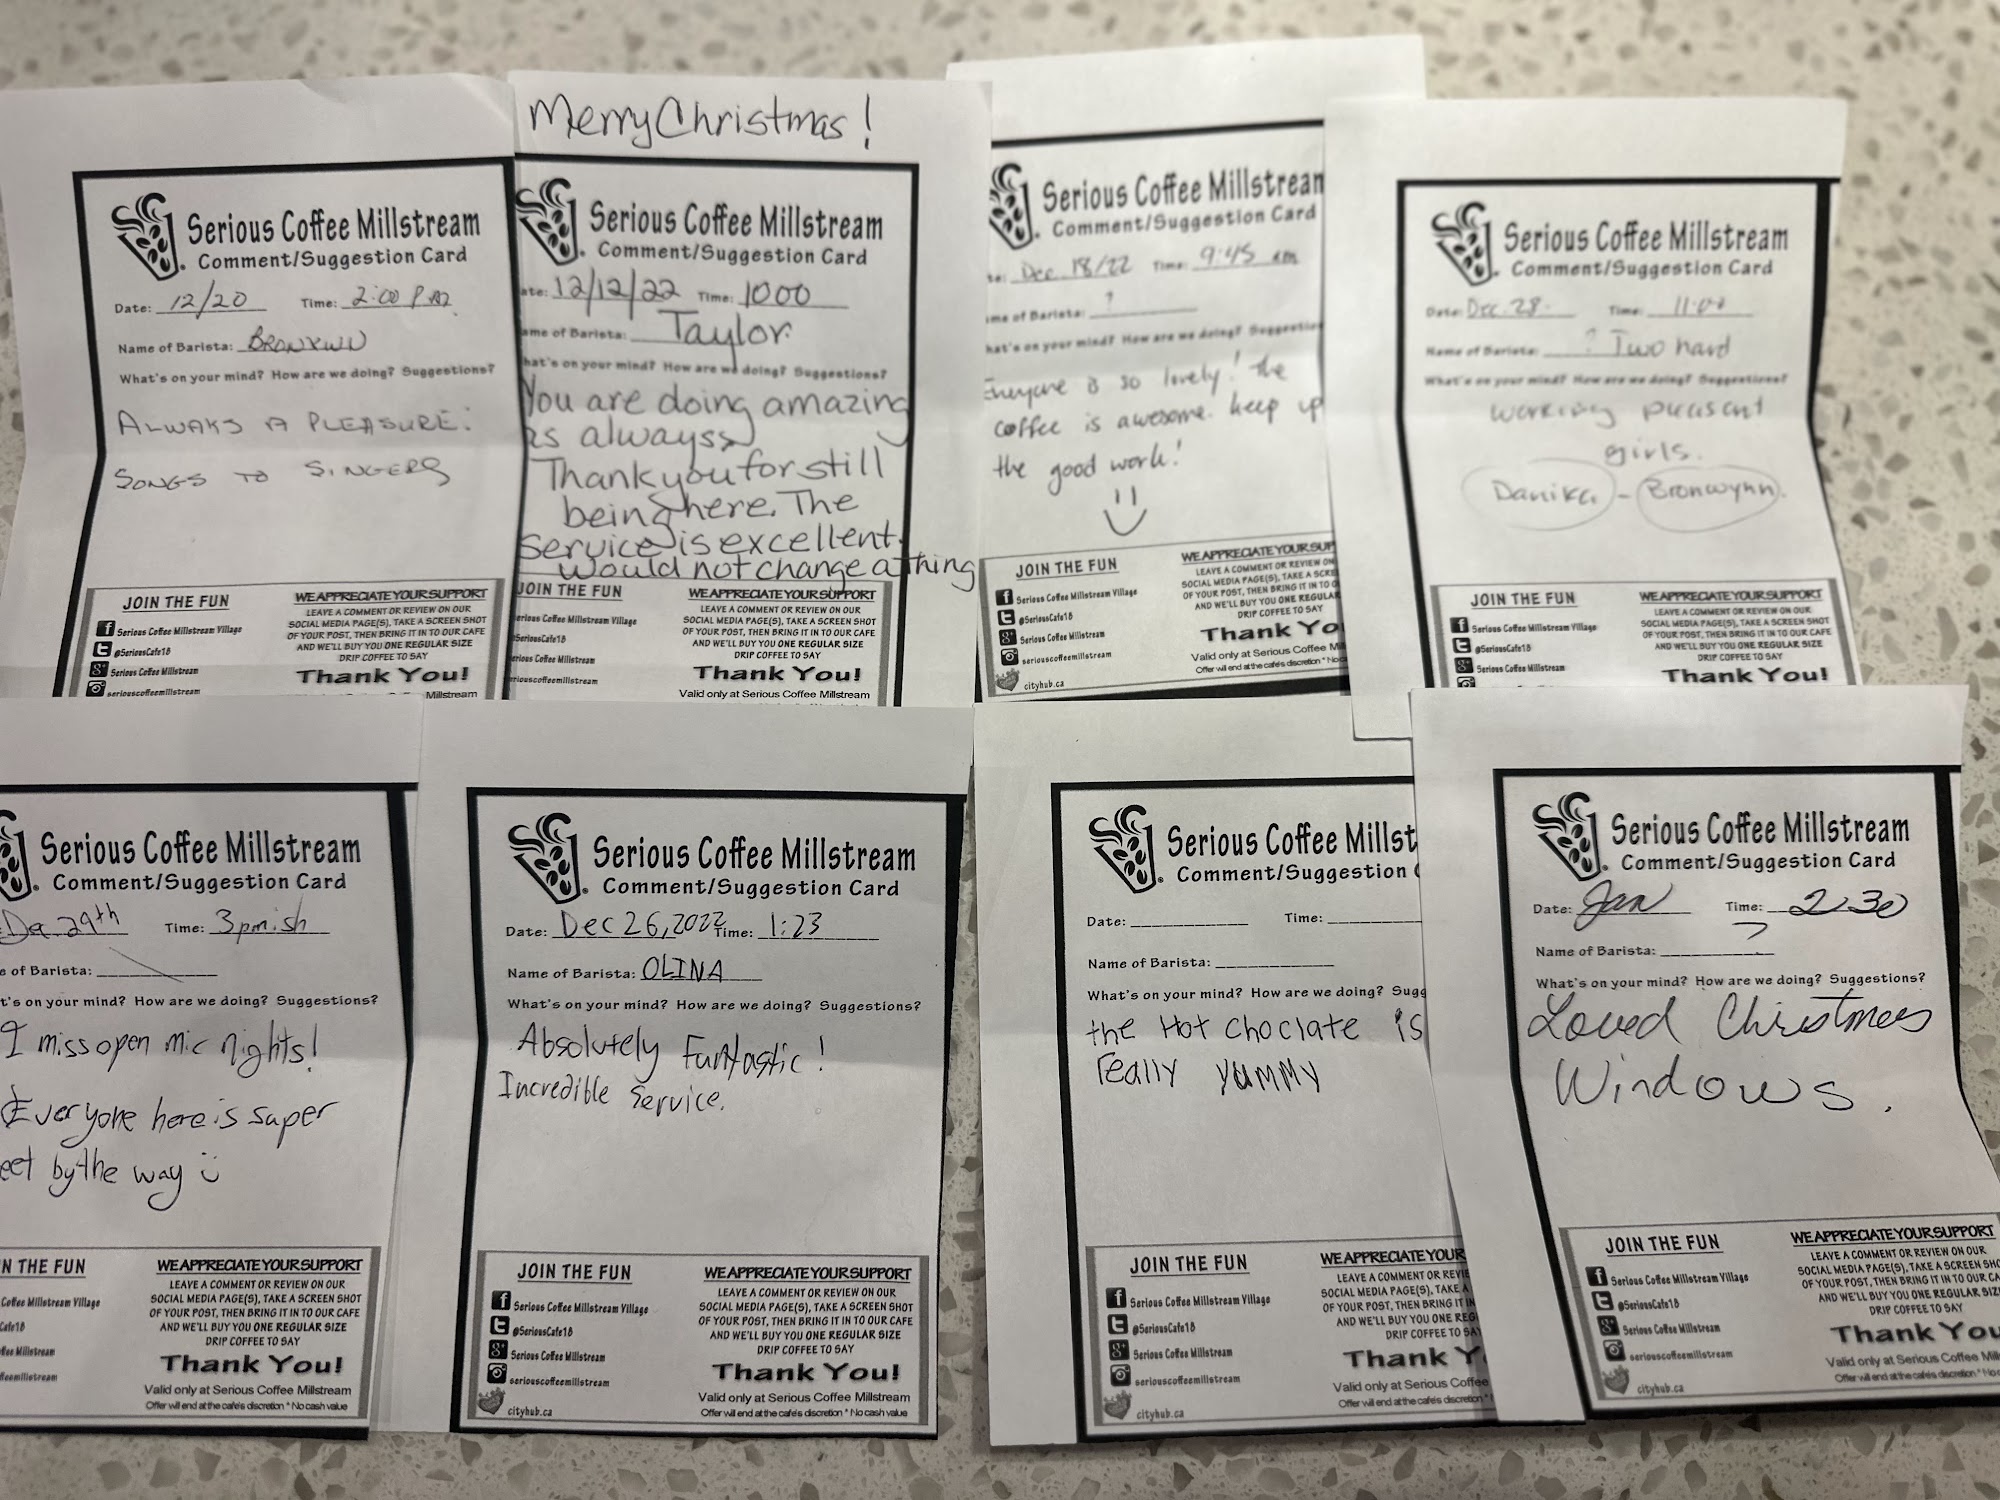 Serious Coffee Millstream
Comment/Suggestion Card
Date: 12/20 Time: 2:00 P.M.
Name of Barista: BRONWYN
What's on your mind? How are we doing? Suggestions?
ALWAYS A PLEASURE:
SONGS TO SINGERS
JOIN THE FUN
Serious Coffee Millstream Village
@SeriousCafe18
Serious Coffee Millstream
seriouscoffeemillstream
WE APPRECIATE YOUR SUPPORT
LEAVE A COMMENT OR REVIEW ON OUR
SOCIAL MEDIA PAGE(S), TAKE A SCREEN SHOT
OF YOUR POST, THEN BRING IT IN TO OUR CAFE
AND WE'LL BUY YOU ONE REGULAR SIZE
DRIP COFFEE TO SAY
Thank You!
Millstream
Merry Christmas!
Serious Coffee Millstream
Comment/Suggestion Card
ate: 12/12/22 Time: 1000
ame of Barista: Taylor
hat's on your mind? How are we doing? Suggestions?
You are doing amazing
as alwayss
Thank you for still
being here. The
Service is excellent.
would not change a thing
JOIN THE FUN
erious Coffee Millstream Village
SeriousCafe18
erious Coffee Millstream
eriouscoffeemillstream
WE APPRECIATE YOUR SUPPORT
LEAVE A COMMENT OR REVIEW ON OUR
SOCIAL MEDIA PAGE(S), TAKE A SCREEN SHOT
OF YOUR POST, THEN BRING IT IN TO OUR CAFE
AND WE'LL BUY YOU ONE REGULAR SIZE
DRIP COFFEE TO SAY
Thank You!
Valid only at Serious Coffee Millstream
Serious Coffee Millstream
Comment/Suggestion Card
te: Dec 18/22 Time: 9:45 am
ame of Barista: ?
hat's on your mind? How are we doing? Suggestion
Everyone is so lovely! the
coffee is awesome. keep up
the good work!
JOIN THE FUN
Serious Coffee Millstream Village
@SeriousCafe18
Serious Coffee Millstream
seriouscoffeemillstream
cityhub.ca
WE APPRECIATE YOUR SUP
LEAVE A COMMENT OR REVIEW ON
SOCIAL MEDIA PAGE(S), TAKE A SCRE
OF YOUR POST, THEN BRING IT IN TO O
AND WE'LL BUY YOU ONE REGULAR
DRIP COFFEE TO SAY
Thank Yo
Valid only at Serious Coffee Mil
Offer will end at the cafe's discretion * No c
Serious Coffee Millstream
Comment/Suggestion Card
Date: Dec. 28. Time: 11:00
Name of Barista: ? Two hard
What's on your mind? How are we doing? Suggestions?
working pleasent
girls.
Danika - Bronwynn.
JOIN THE FUN
Serious Coffee Millstream Village
@SeriousCafe18
Serious Coffee Millstream
WE APPRECIATE YOUR SUPPORT
LEAVE A COMMENT OR REVIEW ON OUR
SOCIAL MEDIA PAGE(S), TAKE A SCREEN SHOT
OF YOUR POST, THEN BRING IT IN TO OUR CAFE
AND WE'LL BUY YOU ONE REGULAR SIZE
DRIP COFFEE TO SAY
Thank You!
Serious Coffee Millstream
Comment/Suggestion Card
: Dec. 29th Time: 3pm.ish
e of Barista:
t's on your mind? How are we doing? Suggestions?
I miss open mic nights!
Everyone here is super
eet by the way
N THE FUN
Coffee Millstream Village
Cafe18
ffee Millstream
ffeemillstream
WE APPRECIATE YOUR SUPPORT
LEAVE A COMMENT OR REVIEW ON OUR
SOCIAL MEDIA PAGE(S), TAKE A SCREEN SHOT
OF YOUR POST, THEN BRING IT IN TO OUR CAFE
AND WE'LL BUY YOU ONE REGULAR SIZE
DRIP COFFEE TO SAY
Thank You!
Valid only at Serious Coffee Millstream
Offer will end at the cafe's discretion * No cash value
Serious Coffee Millstream
Comment/Suggestion Card
Date: Dec 26, 2022 Time: 1:23
Name of Barista: OLINA
What's on your mind? How are we doing? Suggestions?
Absolutely Funtastic!
Incredible Service.
JOIN THE FUN
Serious Coffee Millstream Village
@SeriousCafe18
Serious Coffee Millstream
seriouscoffeemillstream
cityhub.ca
WE APPRECIATE YOUR SUPPORT
LEAVE A COMMENT OR REVIEW ON OUR
SOCIAL MEDIA PAGE(S), TAKE A SCREEN SHOT
OF YOUR POST, THEN BRING IT IN TO OUR CAFE
AND WE'LL BUY YOU ONE REGULAR SIZE
DRIP COFFEE TO SAY
Thank You!
Valid only at Serious Coffee Millstream
Offer will end at the cafe's discretion * No cash value
Serious Coffee Millst
Comment/Suggestion C
Date: Time:
Name of Barista:
What's on your mind? How are we doing? Sugg
the Hot choclate is
really yummy
JOIN THE FUN
Serious Coffee Millstream Village
@SeriousCafe18
Serious Coffee Millstream
seriouscoffeemillstream
cityhub.ca
WE APPRECIATE YOUR
LEAVE A COMMENT OR REVIE
SOCIAL MEDIA PAGE(S), TAKE A
OF YOUR POST, THEN BRING IT IN
AND WE'LL BUY YOU ONE REG
DRIP COFFEE TO SAY
Thank Y
Valid only at Serious Coffee
Offer will end at the cafe's discretion *
Serious Coffee Millstream
Comment/Suggestion Card
Date: Jan Time: 2 30
Name of Barista: ?
What's on your mind? How are we doing? Suggestions?
Loved Christmas
Windows.
JOIN THE FUN
Serious Coffee Millstream Village
@SeriousCafe18
Serious Coffee Millstream
seriouscoffeemillstream
cityhub.ca
WE APPRECIATE YOUR SUPPORT
LEAVE A COMMENT OR REVIEW ON OUR
SOCIAL MEDIA PAGE(S), TAKE A SCREEN SHO
OF YOUR POST, THEN BRING IT IN TO OUR CA
AND WE'LL BUY YOU ONE REGULAR SIZ
DRIP COFFEE TO SAY
Thank You
Valid only at Serious Coffee Mill
Offer will end at the cafe's discretion * No c